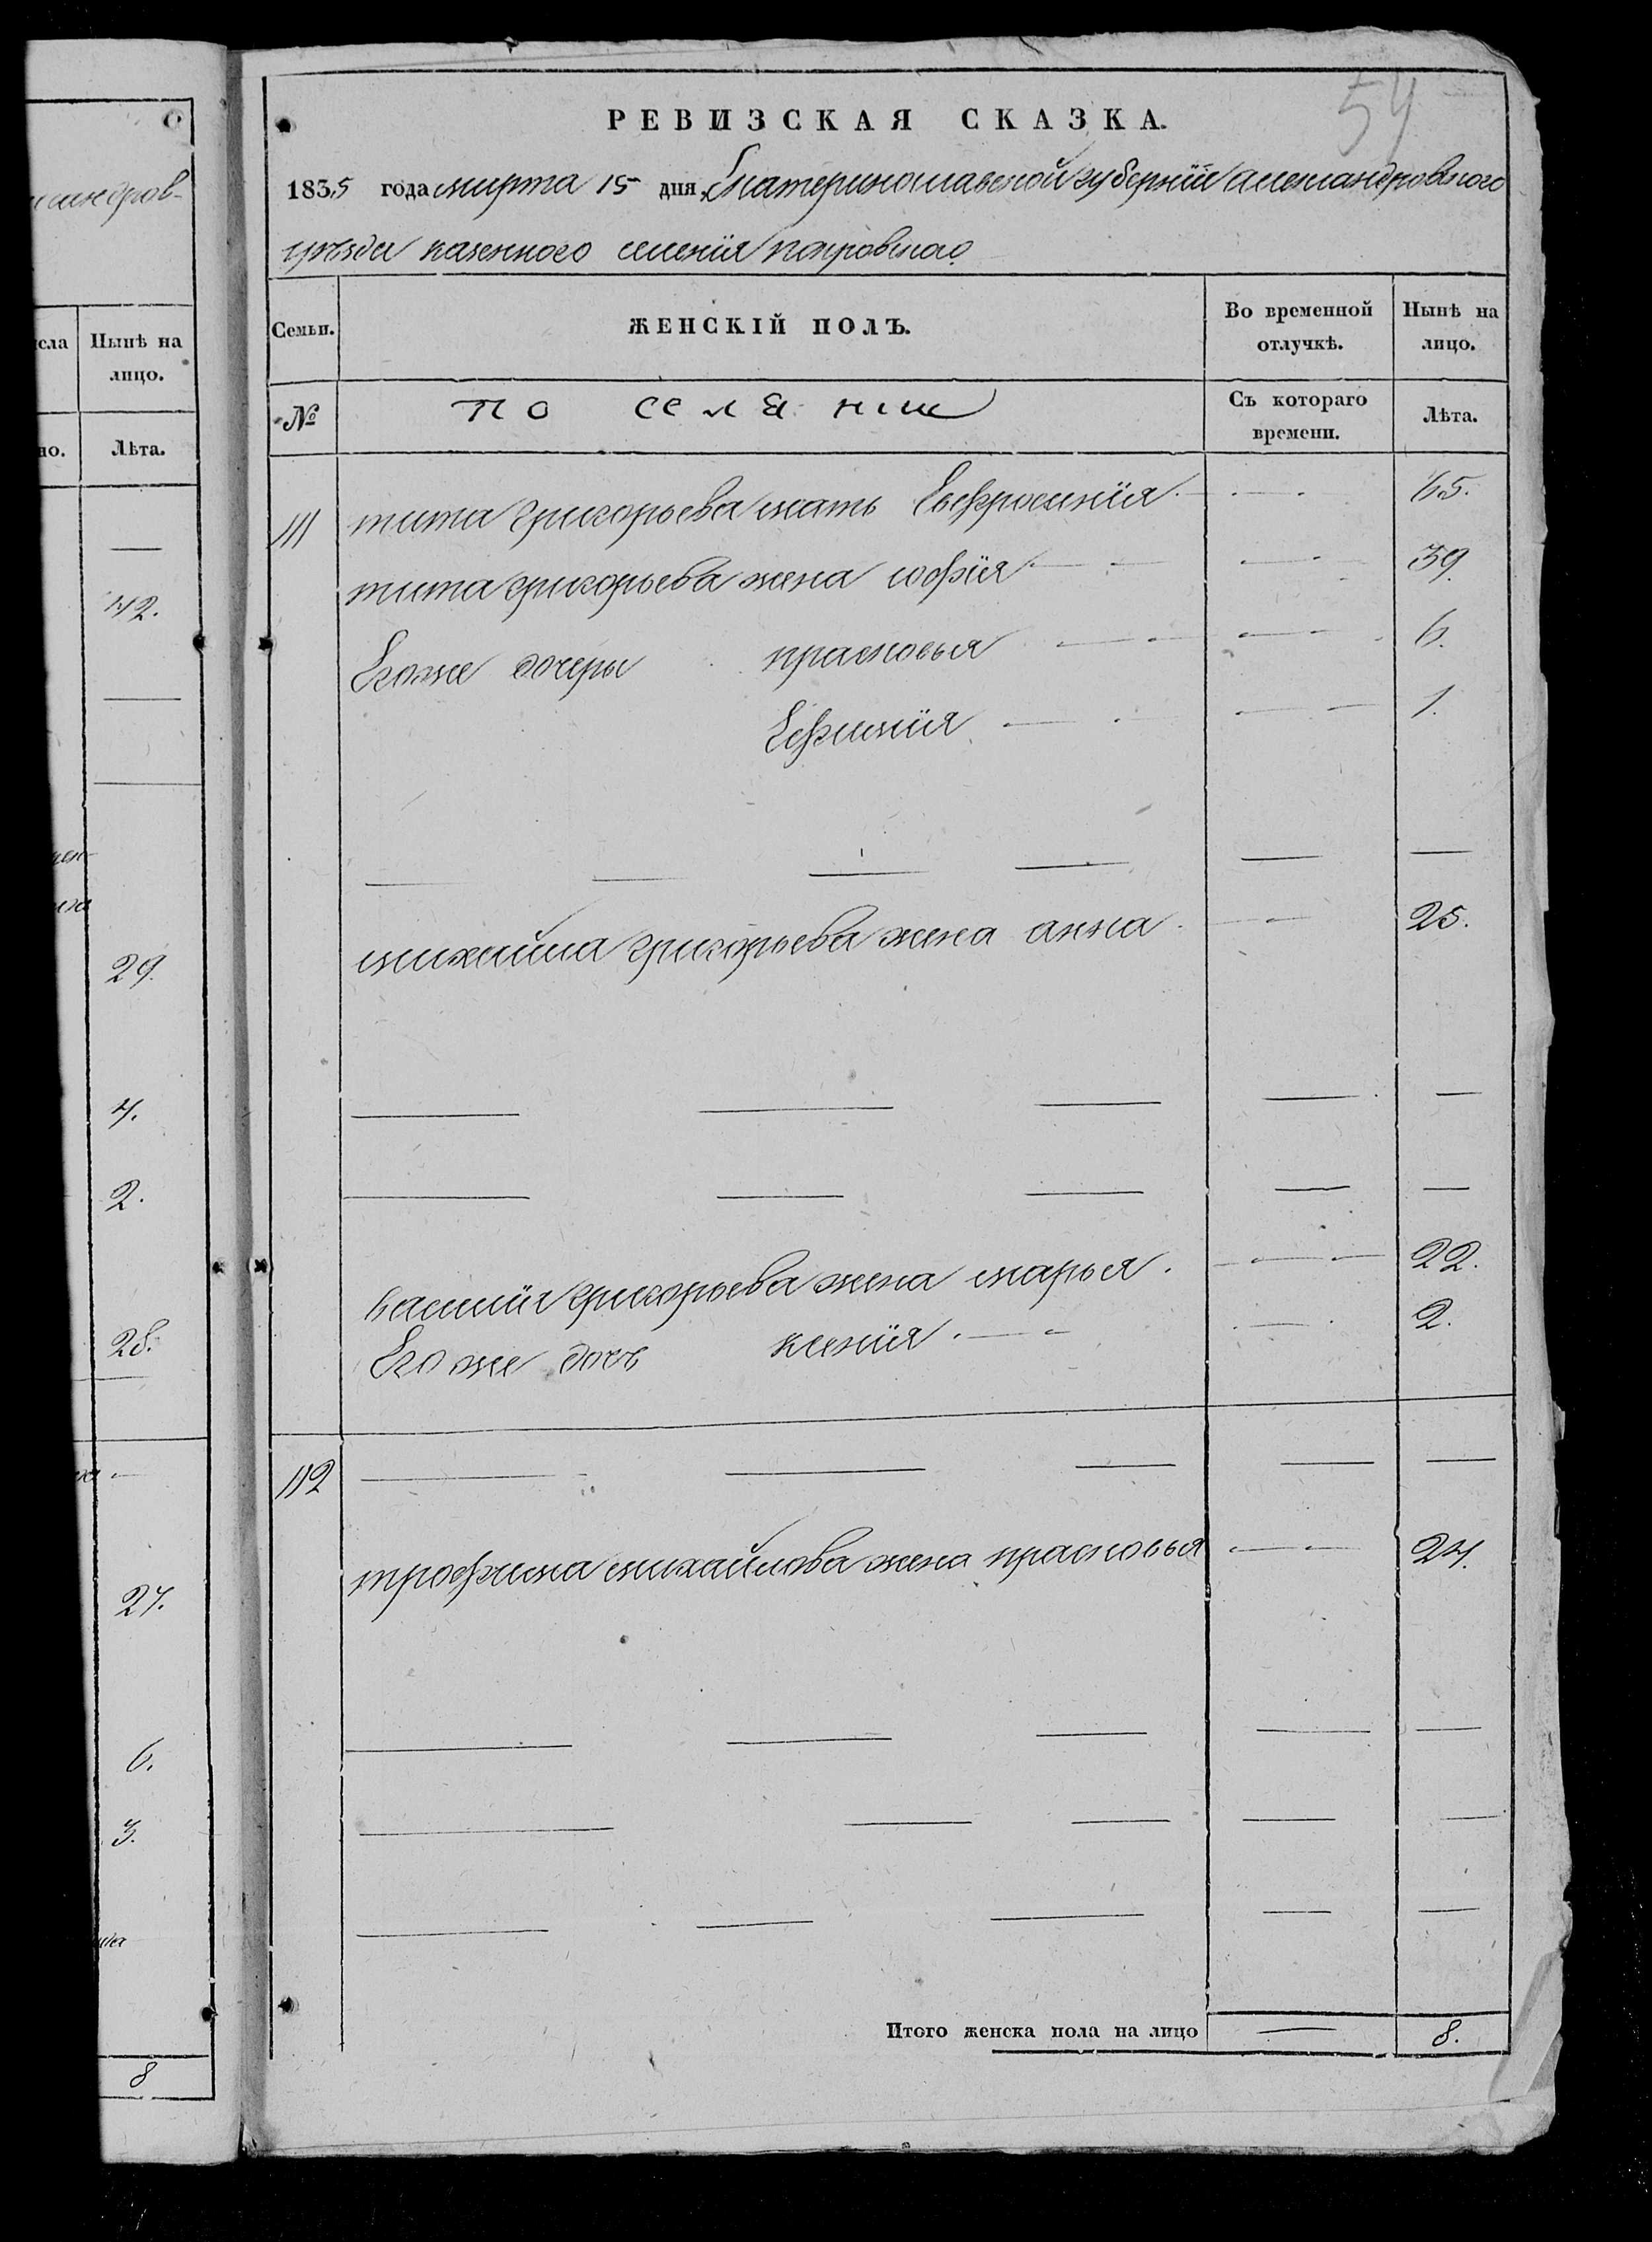 андров-
сла
Нынѣ на
лицо.
но.
Лѣта.
42.
29.
4.
2.
28.
27.
6.
3.
8
54
РЕВИЗСКАЯ СКАЗКА.
1835 года марта 15 дня Екатеринославской губернїи александровского
уѣзда казенного селенїя покровского
Семьи.
ЖЕНСКІЙ ПОЛЪ.
Во временной отлучкѣ.
Нынѣ на лицо.
№
Съ котораго времени.
Лѣта.
111 тита григорьева мать Евфросинїя 65.
тита григорьева жена софїя 39.
Егоже дочеры прасковья 6.
Ефимїя 1.
михайла григорьева жена анна 25.
василїя григорьева жена марья 22.
Егоже дочь ксенїя 2.
112
трофима михайлова жена прасковья 24.
Итого женска пола на лицо 8.